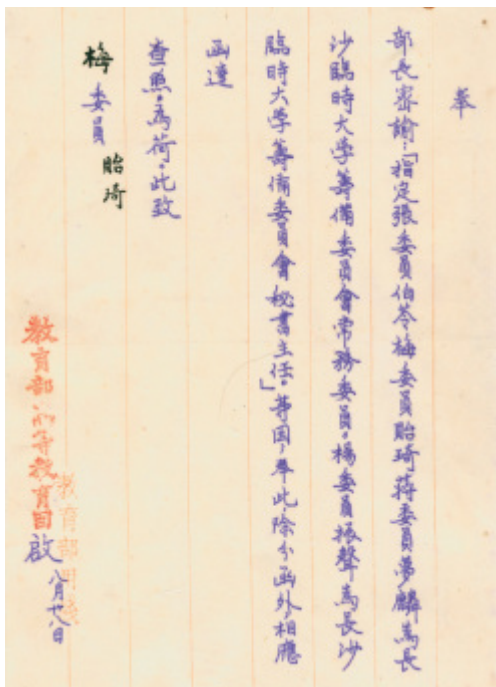 奉
部長密諭：「指定張委員伯苓梅委員貽琦蔣委員夢麟為長
沙臨時大学籌備委員會常務委員。楊委員振聲為長沙
臨時大学籌備委員會秘書主任。」等因，奉此，除分函外，相應
函達
查照，為荷。此致
梅委員貽琦
教育部高等教育司啟 八月廿八日
教育部用箋